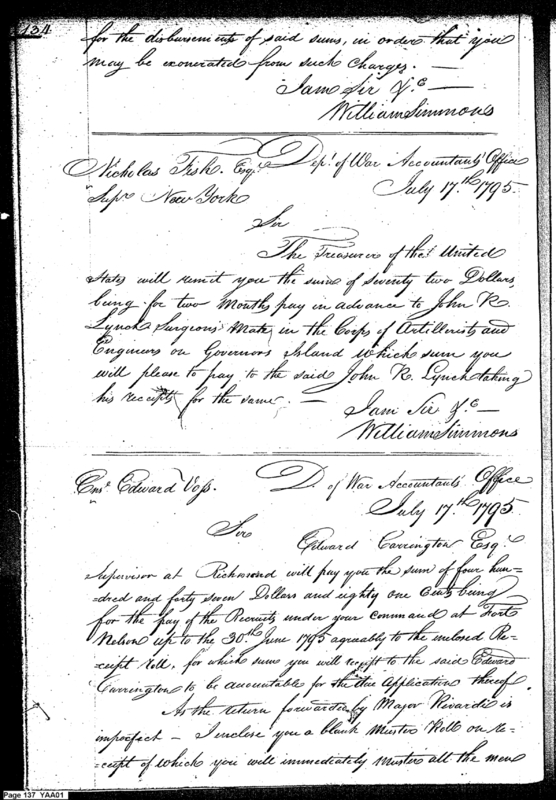 134
for the disbursements of said sums, in order that you
may be exonerated from such Charges. —
I am Sir &c —
William Simmons
Nicholas Fish Esqr. Dept. of War Accountants Office
Supr. New York July 17th. 1795.
Sir
The Treasurer of the United
States will remit you the sum of Seventy two Dollars
being for two Months pay in advance to John R.
Lynch Surgeons Mate, in the Corps of Artillerists and
Engineers on Governors Island which sum you
will please to pay to the said John R. Lynch taking
his receipts for the same. —
I am Sir &c —
William Simmons
Ensn. Edward Voss. D. of War Accountants Office
July 17th. 1795.
Sir
Edward Carrington Esqr.
Supervisor at Richmond will pay you the sum of four hun=
=dred and forty seven Dollars and eighty one Cents being
for the pay of the Recruits under your command at Fort
Nelson up to the 30th June 1795 agreeably to the enclosed Re=
=ceipt Roll, for which sums you will receipt to the said Edward
Carrington to be accountable for the due Application thereof
As the return forwarded by Major Rivardi is
imperfect — I enclose you a blank Muster Roll on re=
=ceipt of which you will immediately Muster all the men
Page 137 YAA01